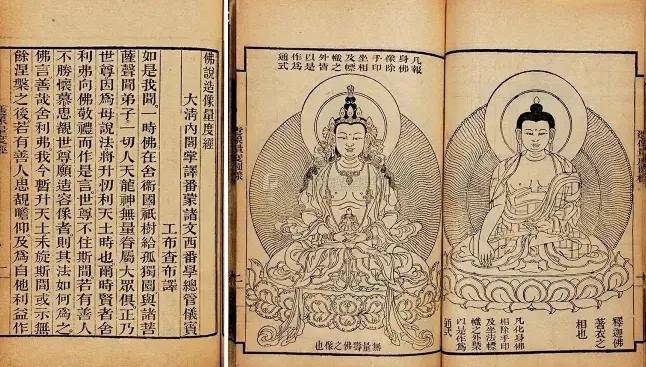 佛說造像量度經
大清內閣掌譯番蒙諸文西番學總管儀賓
工布查布譯
如是我聞。一時佛在舍衞國祇樹給孤獨園與諸菩
薩聲聞弟子一切人天龍神無量眷屬大眾俱正乃
世尊因為母說法將升忉利天土時也爾時賢者舍
利弗向佛敬禮而作是言世尊不住斯間若有善人
不勝懷慕思覩世尊願造容像者則其法如何為之
佛言善哉舍利弗我今暫升天土未旋斯間或示無
餘涅槃之後若有善人思覩瞻仰及為自他利益作
釋迦佛
著衣之
相也
凡化身佛
相除手印
及坐法標
幟之外槩
以是作為
通式
凡報
身佛
像除
手印
坐相
及標
幟之
外皆
以是
作為
通式
無量壽佛之像也